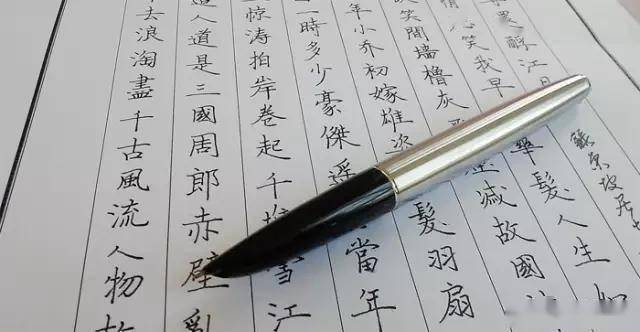 去浪淘盡千古風流人物故
人道是三國周郎赤壁亂
惊涛拍岸卷起千堆雪江
一時多少豪傑遥當年
年小乔初嫁雄次髮羽扇
笑間墙櫓灰減故國
情心笑我早華髮人生如
酹江月
蘇東坡